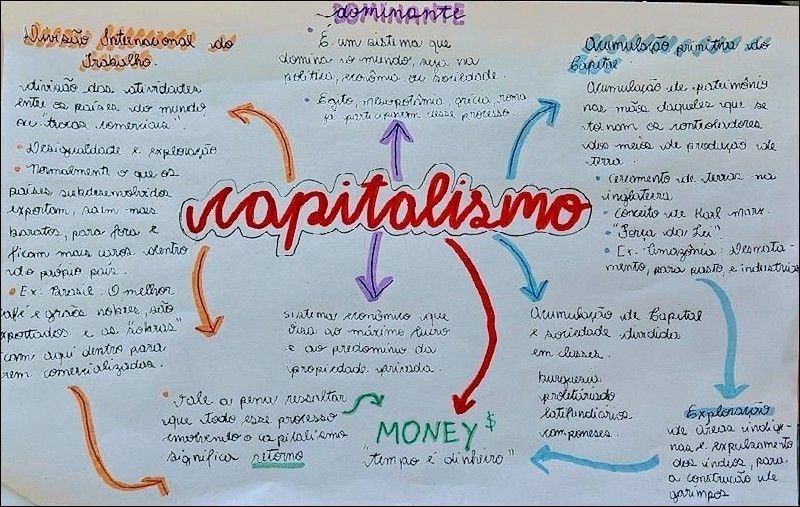 Divisão Internacional do
Trabalho.
divisão das atividades
entre os países do mundo,
ou "trocas comerciais".
• Desigualdade e exploração
• Normalmente o que os
países subdesenvolvidos
exportam, saem mais
baratos, para fora e
ficam mais caros dentro
do próprio país.
• Ex: Brasil: O melhor
café e grãos nobres, são
exportados e as "sobras"
ficam aqui dentro para
serem comercializadas.
dominante
DOMINANTE
• É um sistema que
domina o mundo, seja na
política, econômia ou sociedade.
• Egito, mesopotâmia, grécia, roma
já participavam desse processo.
Acumulação primitiva do
Capital
Acumulação de patrimônio
nas mãos daqueles que se
tornam os controladores
dos meios de produção de
terra.
• cercamento de terras na
inglaterra
• conceito de Karl marx.
• "Força da Lei".
• Ex: Amazônia: Desmata-
mento, para pasto, e industrias
capitalismo
sistema econômico que
visa ao máximo lucro
e ao predomínio da
propriedade privada.
Acumulação de Capital
e sociedade dividida
em classes.
burguesia
proletariado
latifundiarios
camponeses.
• Vale a pena ressaltar
que todo esse processo
envolvendo o capitalismo
significa retorno
MONEY $
"tempo é dinheiro"
Exploração
de áreas indíge-
nas e expulsamento
dos índios, para
a construção de
garimpos